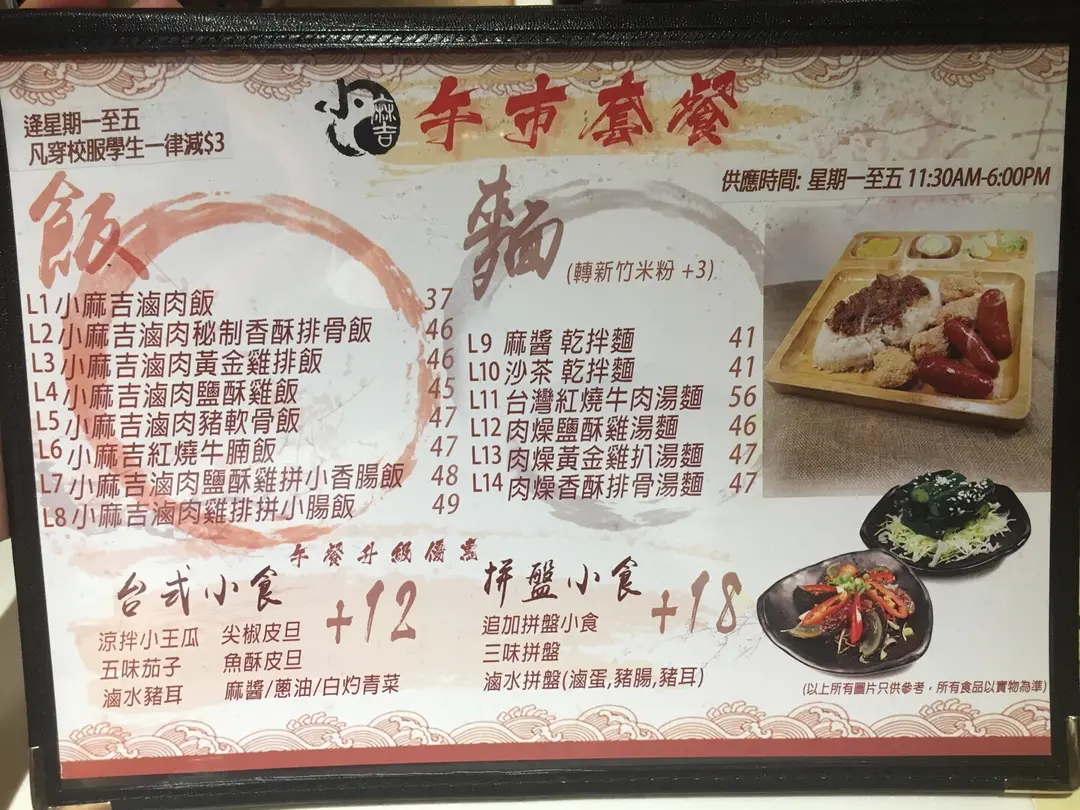 逢星期一至五
凡穿校服學生一律減$3
小麻吉
午市套餐
供應時間: 星期一至五 11:30AM-6:00PM
飯
L1 小麻吉滷肉飯 37
L2 小麻吉滷肉秘制香酥排骨飯 46
L3 小麻吉滷肉黃金雞排飯 46
L4 小麻吉滷肉鹽酥雞飯 45
L5 小麻吉滷肉豬軟骨飯 47
L6 小麻吉紅燒牛腩飯 47
L7 小麻吉滷肉鹽酥雞拼小香腸飯 48
L8 小麻吉滷肉雞排拼小腸飯 49
麵
(轉新竹米粉 +3)
L9 麻醬 乾拌麵 41
L10 沙茶 乾拌麵 41
L11 台灣紅燒牛肉湯麵 56
L12 肉燥鹽酥雞湯麵 46
L13 肉燥黃金雞扒湯麵 47
L14 肉燥香酥排骨湯麵 47
午餐升級優惠
台式小食 +12
涼拌小王瓜 尖椒皮旦
五味茄子 魚酥皮旦
滷水豬耳 麻醬/蔥油/白灼青菜
拼盤小食 +18
追加拼盤小食
三味拼盤
滷水拼盤(滷蛋,豬腸,豬耳)
(以上所有圖片只供參考，所有食品以實物為準)